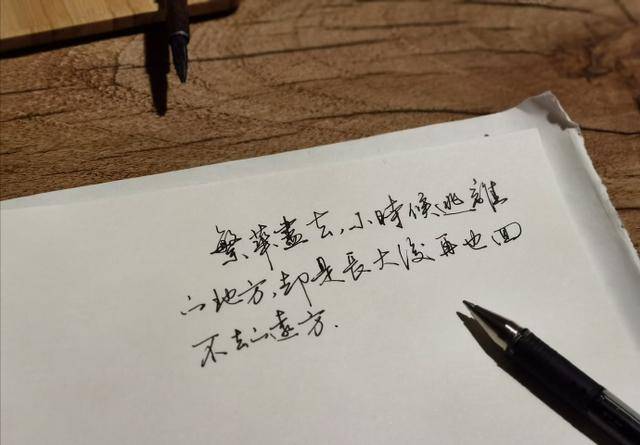 繁華盡去,小時候逃離
的地方,却是長大後再也回
不去的遠方.